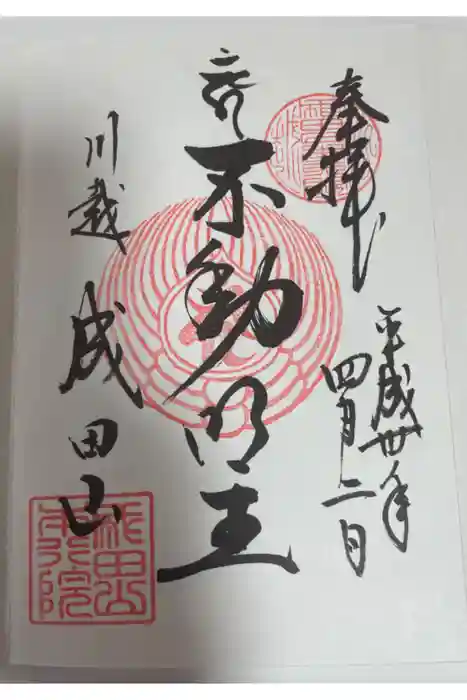 奉拝
平成丗年
四月二日
不動明王
川越 成田山
成田山
本行院